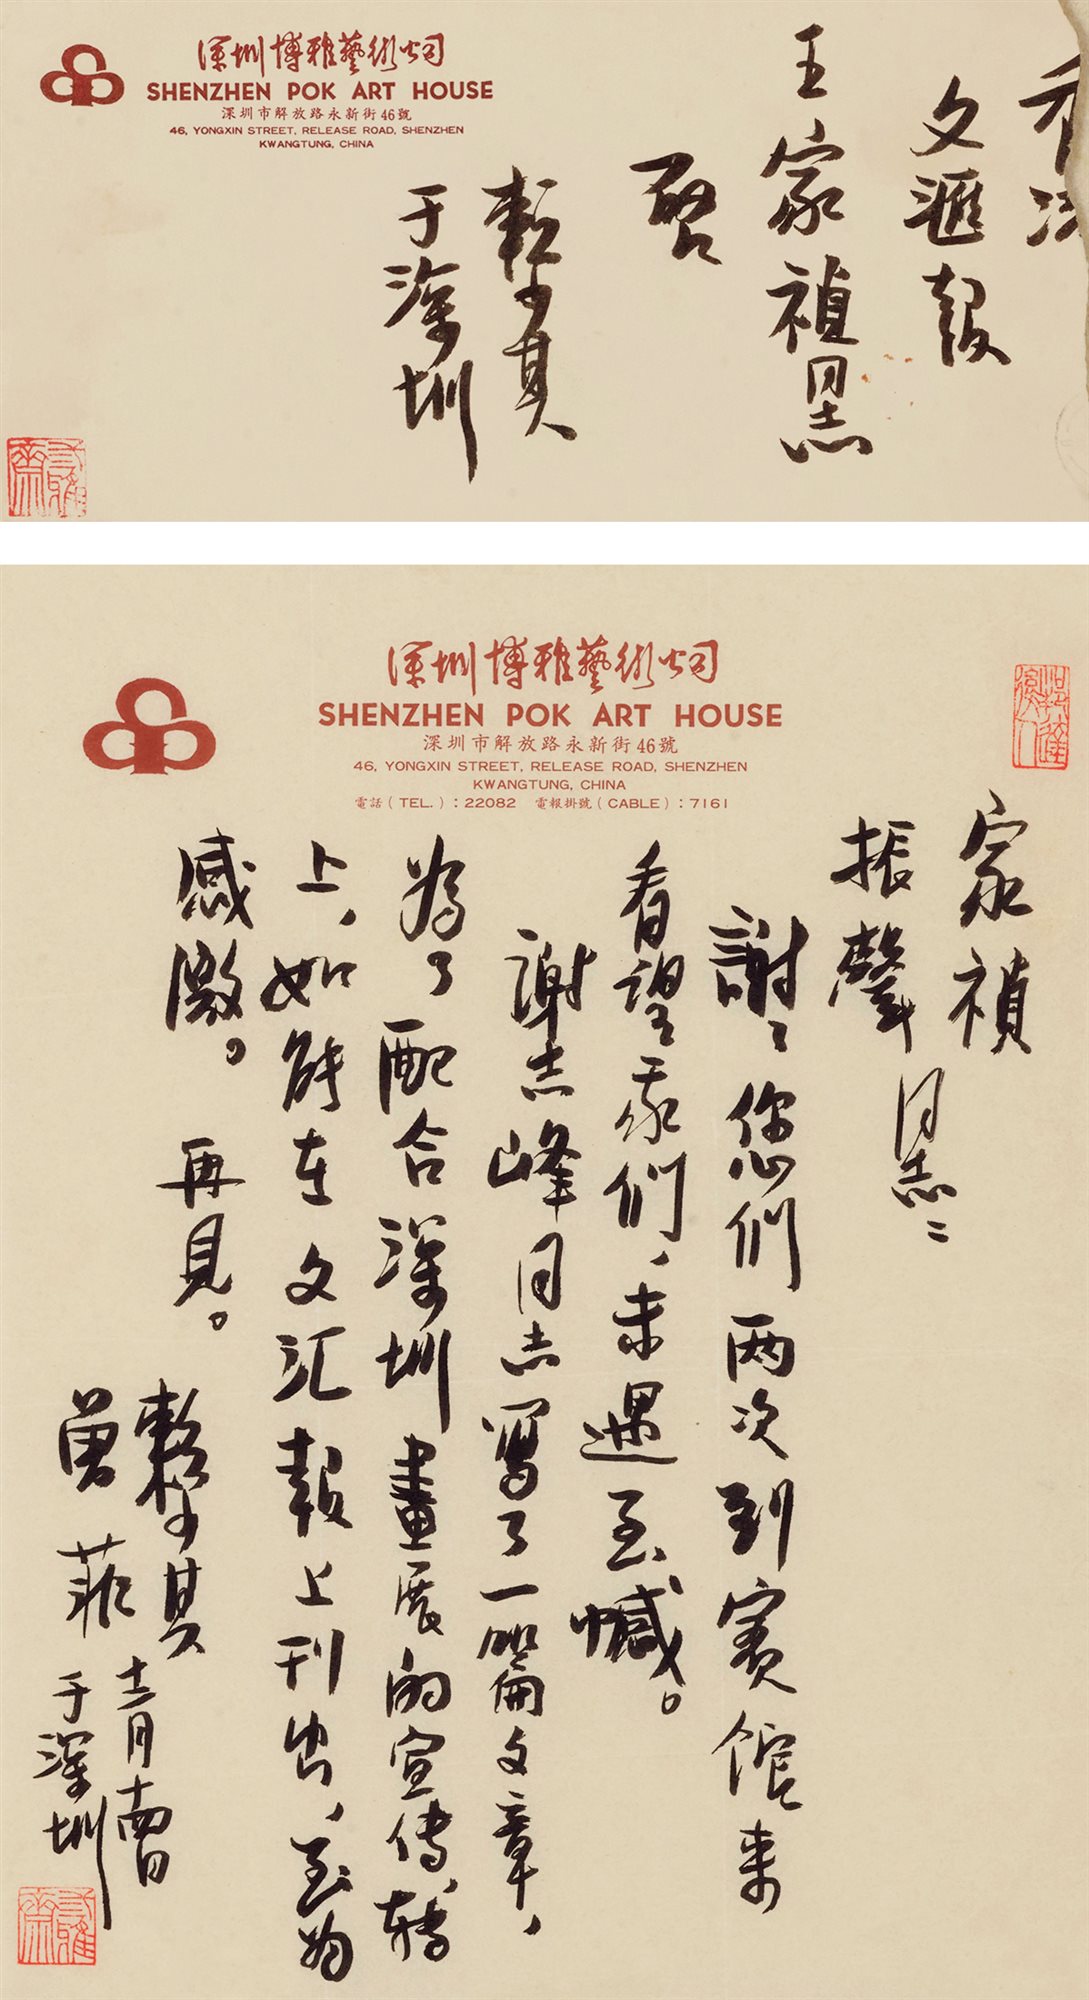 深圳博雅藝術公司
SHENZHEN POK ART HOUSE
深圳市解放路永新街46號
46, YONGXIN STREET, RELEASE ROAD, SHENZHEN
KWANGTUNG, CHINA
香港
文滙報
王家禎同志
啓
賴少其
于深圳
深圳博雅藝術公司
SHENZHEN POK ART HOUSE
深圳市解放路永新街46號
46, YONGXIN STREET, RELEASE ROAD, SHENZHEN
KWANGTUNG, CHINA
電話(TEL.):22082 電報掛號(CABLE):7161
家禎
振聲同志:
謝謝您們两次到賓館来
看望我們,未遇至憾。
謝志峰同志寫了一篇文章,
為了配合深圳畫展的宣传,轉
上,如能在文汇報上刊出,至為
感激。再見。
賴少其
曾菲
十二月十四日
于深圳